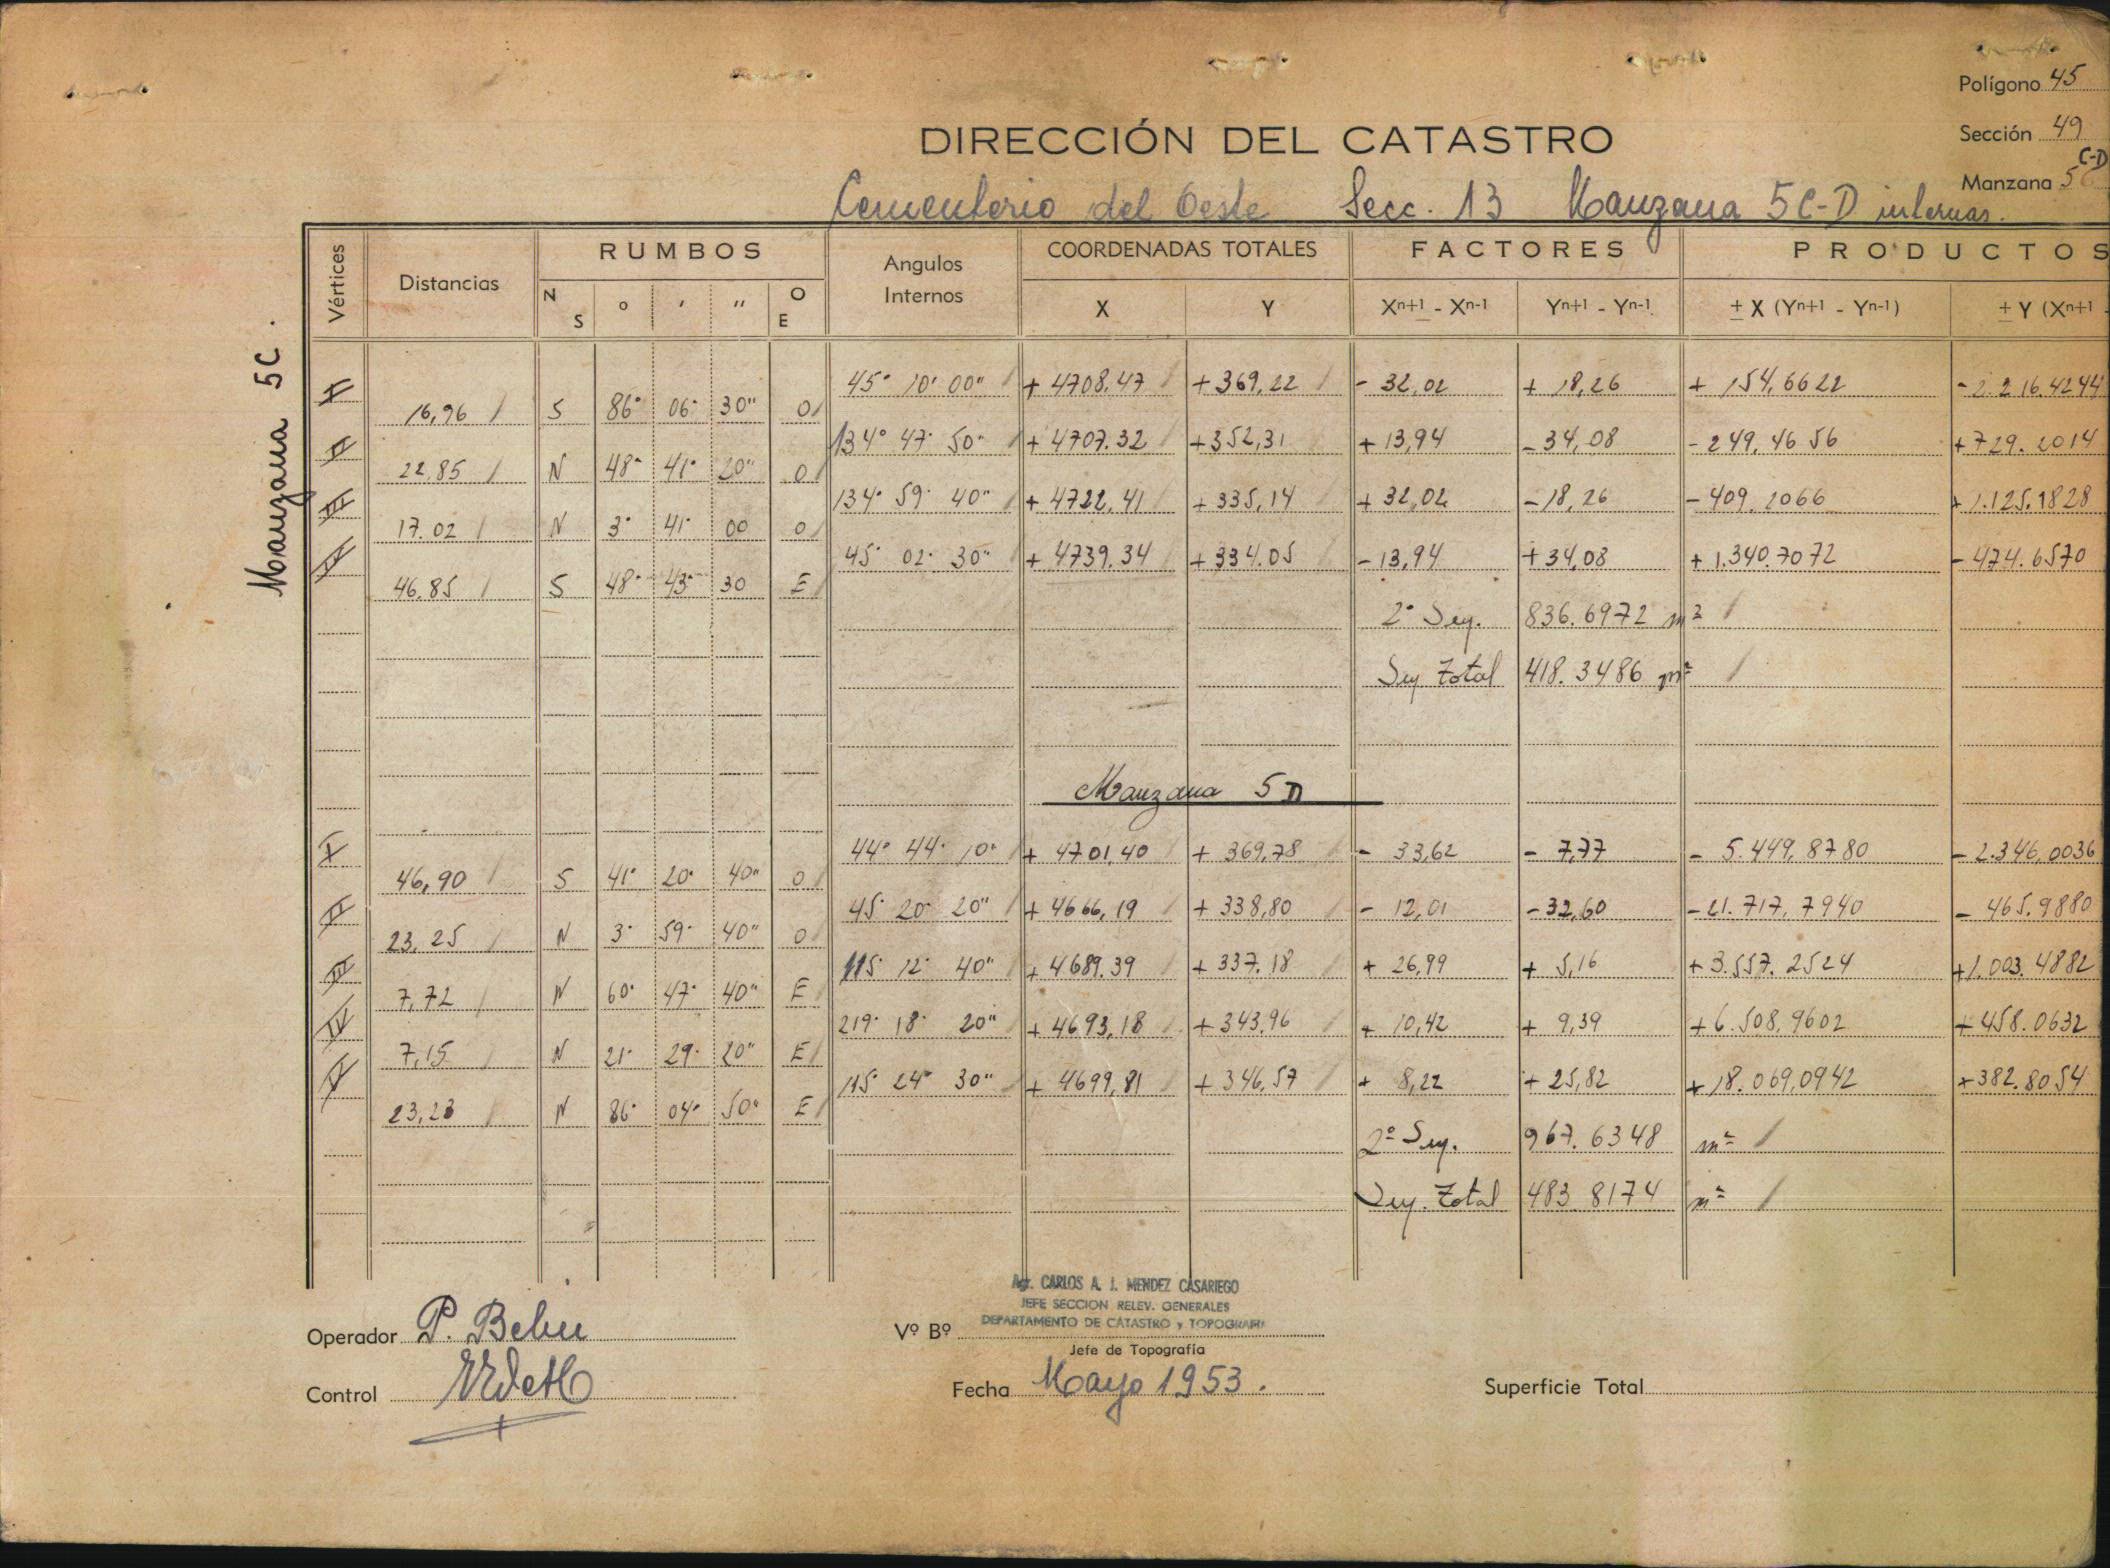 Polígono 45
Sección 49
C-D
Manzana 5
DIRECCIÓN DEL CATASTRO
Cementerio del Oeste Secc. 13 Manzana 5C-D internas.
Manzana 5C.
Vértices Distancias RUMBOS Angulos Internos COORDENADAS TOTALES FACTORES PRODUCTOS
N S ° ' '' O E X Y Xn+1 - Xn-1 Yn+1 - Yn-1 ± X (Yn+1 - Yn-1) ± Y (Xn+1 -
I 45° 10' 00" + 4708,47 + 369,22 - 32,02 + 18,26 + 154,6622 - 2.216.4244
16,96 S 86° 06' 30" O
II 134° 47' 50" + 4707.32 + 352,31 + 13,94 - 34,08 - 249,4656 + 729.2014
22,85 N 48° 41' 20" O
III 134° 59' 40" + 4722,41 + 335,14 + 32,02 - 18,26 - 409.2066 + 1.125.1828
17.02 N 3° 41' 00 O
IV 45° 02' 30" + 4739.34 + 334.05 - 13,94 + 34,08 + 1.340.7072 - 474.6570
46.85 S 48° 43' 30 E
2° Sup. 836.6972 m²
Sup Total 418.3486 m²
Manzana 5D
I 44° 44' 10" + 4701,40 + 369,78 - 33,62 - 7,77 - 5.449,8780 - 2.346,0036
46,90 S 41° 20' 40" O
II 45° 20' 20" + 4666,19 + 338,80 - 12,01 - 32,60 - 21.717,7940 - 465.9880
23,25 N 3° 59' 40" O
III 115° 12' 40" + 4689.39 + 337.18 + 26,99 + 5,16 + 3.557.2524 + 1.003.4882
7,72 N 60° 47' 40" E
IV 219° 18' 20" + 4693,18 + 343,96 + 10,42 + 9,39 + 6.508,9602 + 458.0632
7,15 N 21° 29' 20" E
V 115° 24' 30" + 4699,81 + 346,57 + 8,22 + 25,82 + 18.069,0942 + 382.8054
23,23 N 86° 04' 50" E
2° Sup. 967.6348 m²
Sup. Total 483.8174 m²
Agr. CARLOS A. I. MENDEZ CASARIEGO
JEFE SECCION RELEV. GENERALES
Operador P. Vº Bº DEPARTAMENTO DE CATASTRO y TOPOGRAFI
Jefe de Topografía
Control Fecha Mayo 1953. Superficie Total